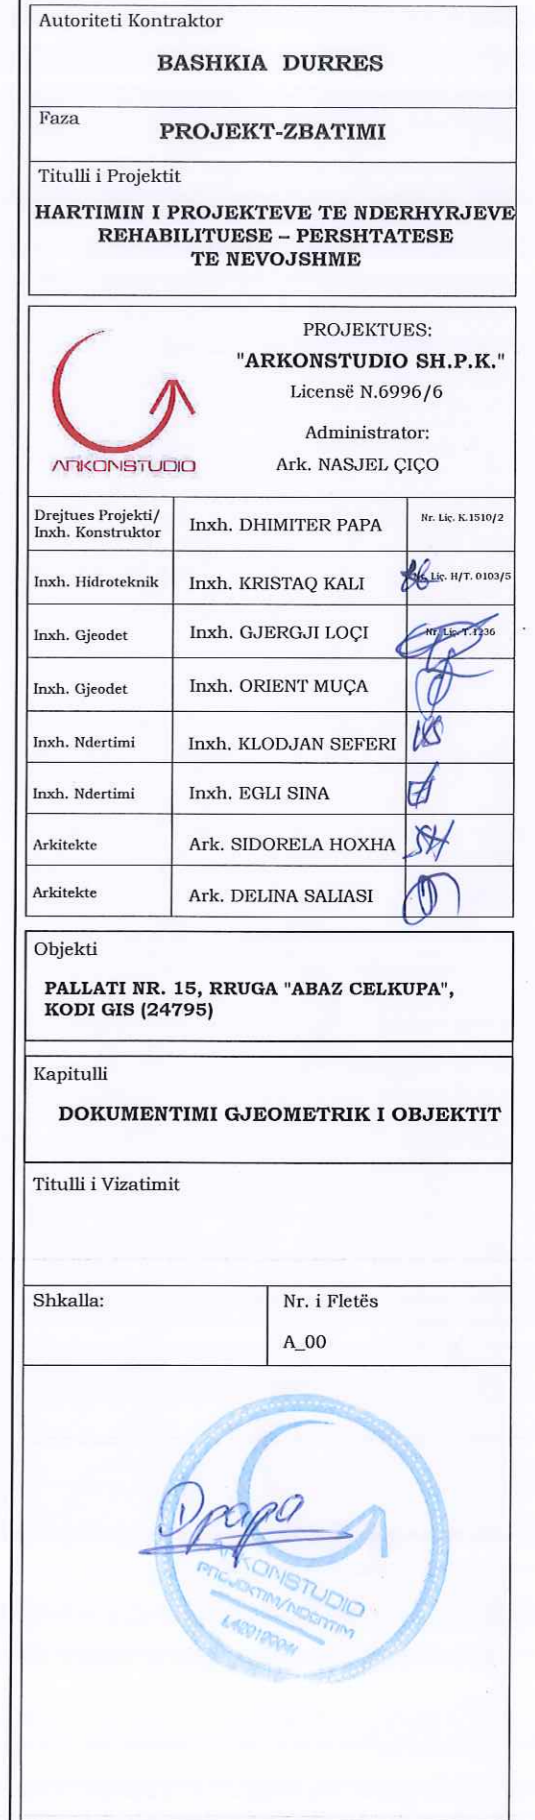 Autoriteti Kontraktor
BASHKIA DURRES
Faza
PROJEKT-ZBATIMI
Titulli i Projektit
HARTIMIN I PROJEKTEVE TE NDERHYRJEVE
REHABILITUESE – PERSHTATESE
TE NEVOJSHME
PROJEKTUES:
"ARKONSTUDIO SH.P.K."
Licensë N.6996/6
Administrator:
Ark. NASJEL ÇIÇO
ARKONSTUDIO
Drejtues Projekti/
Inxh. Konstruktor
Inxh. DHIMITER PAPA
Nr. Liç. K.1510/2
Inxh. Hidroteknik
Inxh. KRISTAQ KALI
Liç. H/T. 0103/5
Inxh. Gjeodet
Inxh. GJERGJI LOÇI
Nr. Liç. T.1236
Inxh. Gjeodet
Inxh. ORIENT MUÇA
Inxh. Ndertimi
Inxh. KLODJAN SEFERI
Inxh. Ndertimi
Inxh. EGLI SINA
Arkitekte
Ark. SIDORELA HOXHA
SH
Arkitekte
Ark. DELINA SALIASI
Objekti
PALLATI NR. 15, RRUGA "ABAZ CELKUPA",
KODI GIS (24795)
Kapitulli
DOKUMENTIMI GJEOMETRIK I OBJEKTIT
Titulli i Vizatimit
Shkalla:
Nr. i Fletës
A_00
Dpapa
ARKONSTUDIO
PROJEKTIM/NDERTIM